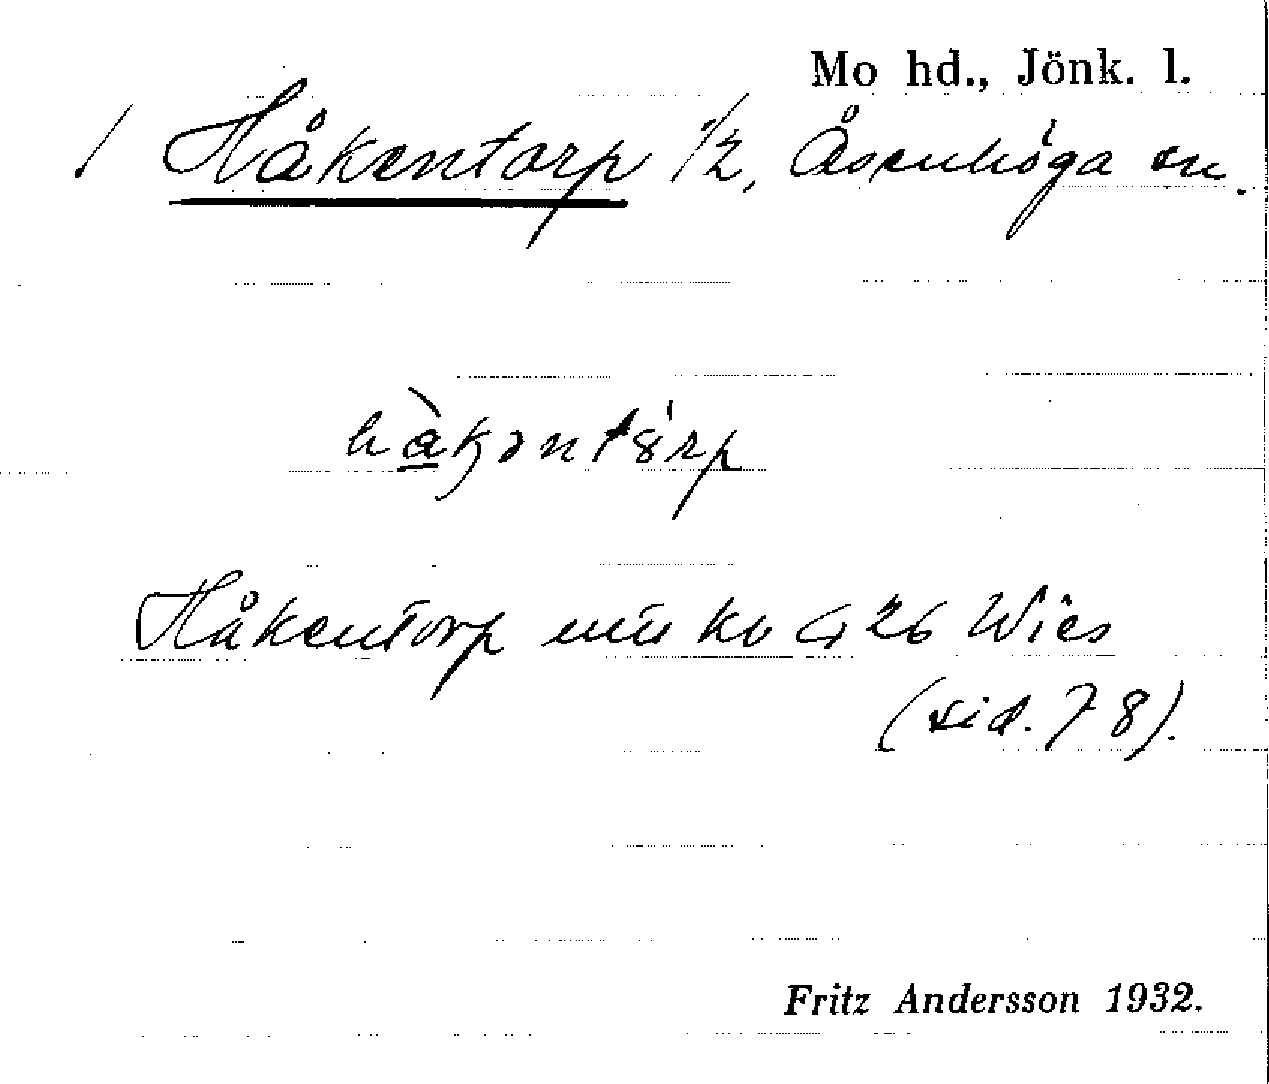 Mo hd., Jönk. l.
/ Håkentorp 1/2, Åsenhöga sn.
hàkəntǿrp
Håkentorp 26 Wies
(sid. 78).
Fritz Andersson 1932.